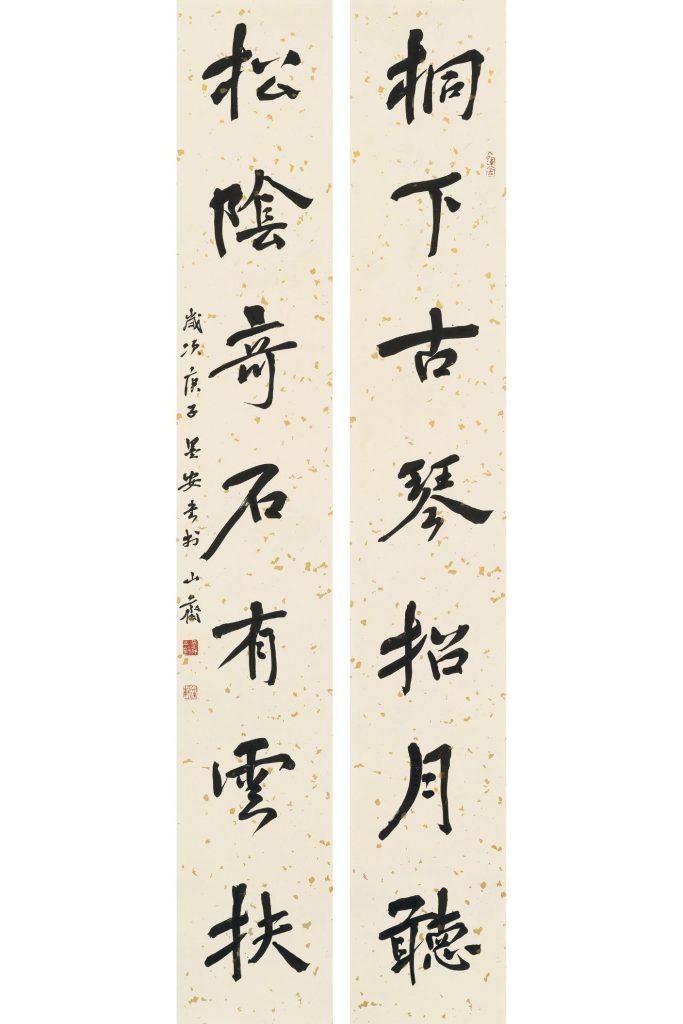 桐下古琴招月聽
松陰奇石有雲扶
歲次庚子 墨安書於 山齋